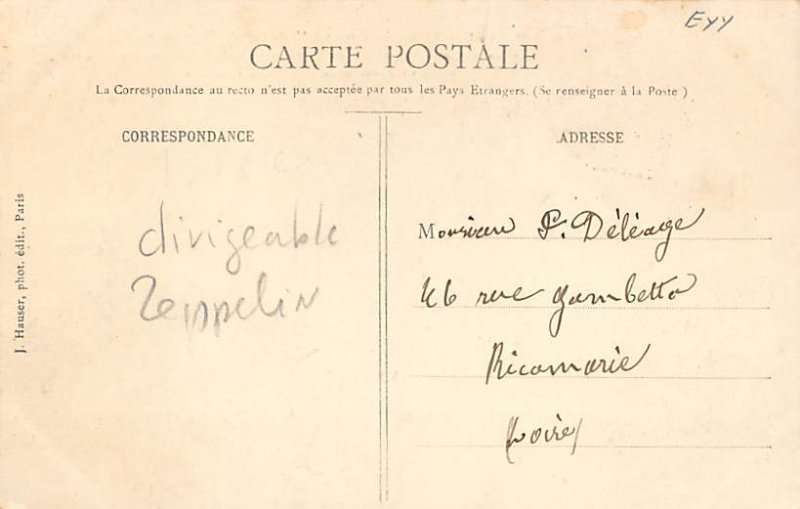 Eyy
CARTE POSTALE
La Correspondance au recto n'est pas acceptée par tous les Pays Etrangers. (Se renseigner à la Poste)
CORRESPONDANCE
dirigeable
Zeppelin
J. Hauser, phot. édit., Paris
ADRESSE
Monsieur P. Déléage
46 rue Gambetta
Ricamarie
Loire